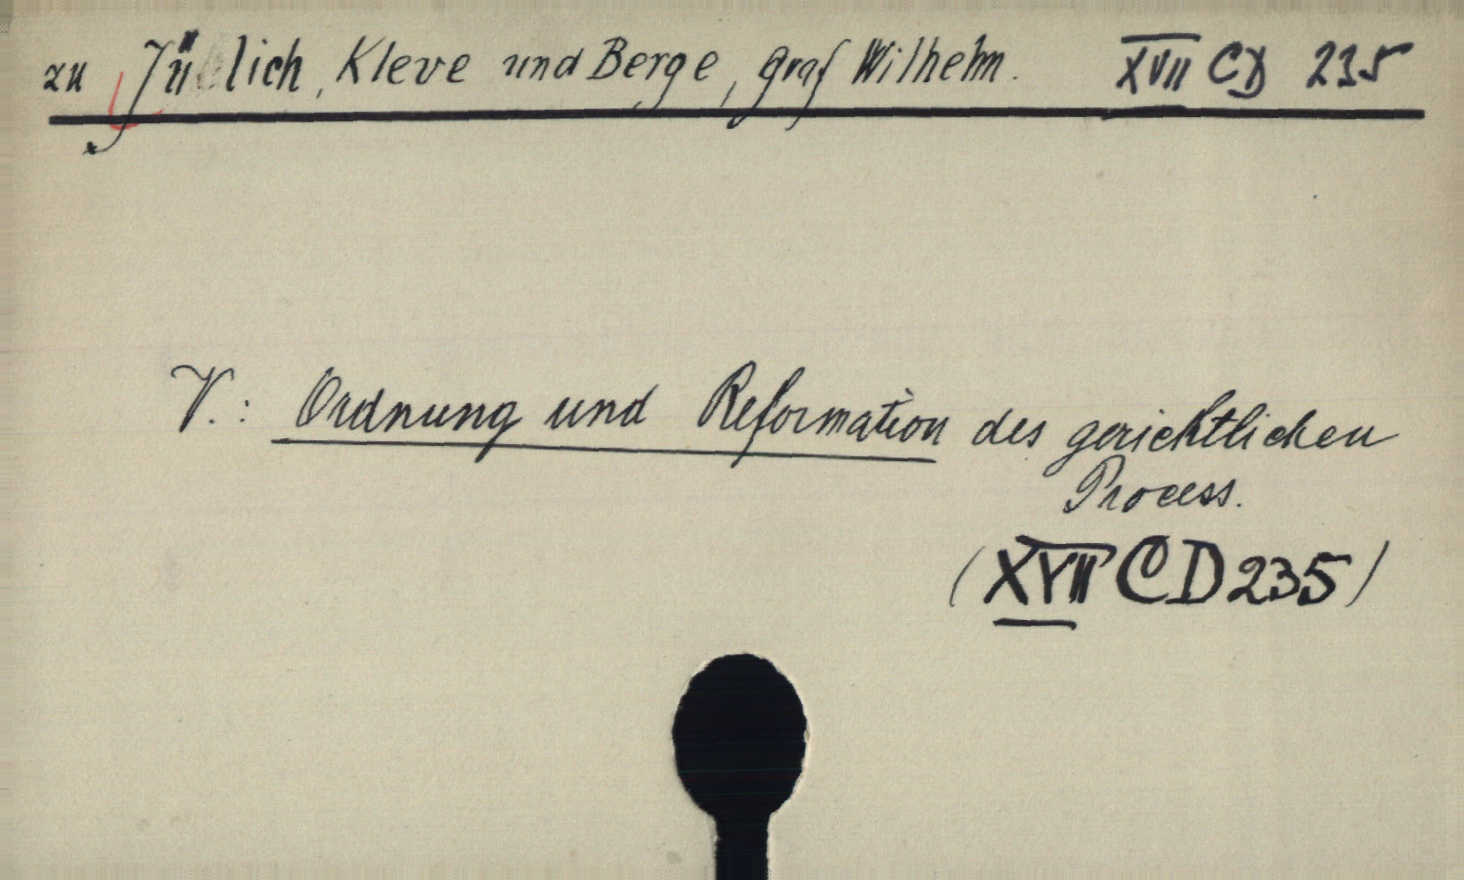 zu Jülich, Kleve und Berge, Graf Wilhelm. XVII CD 235
V.: Ordnung und Reformation des gerichtlichen
Process.
(XVII CD 235)